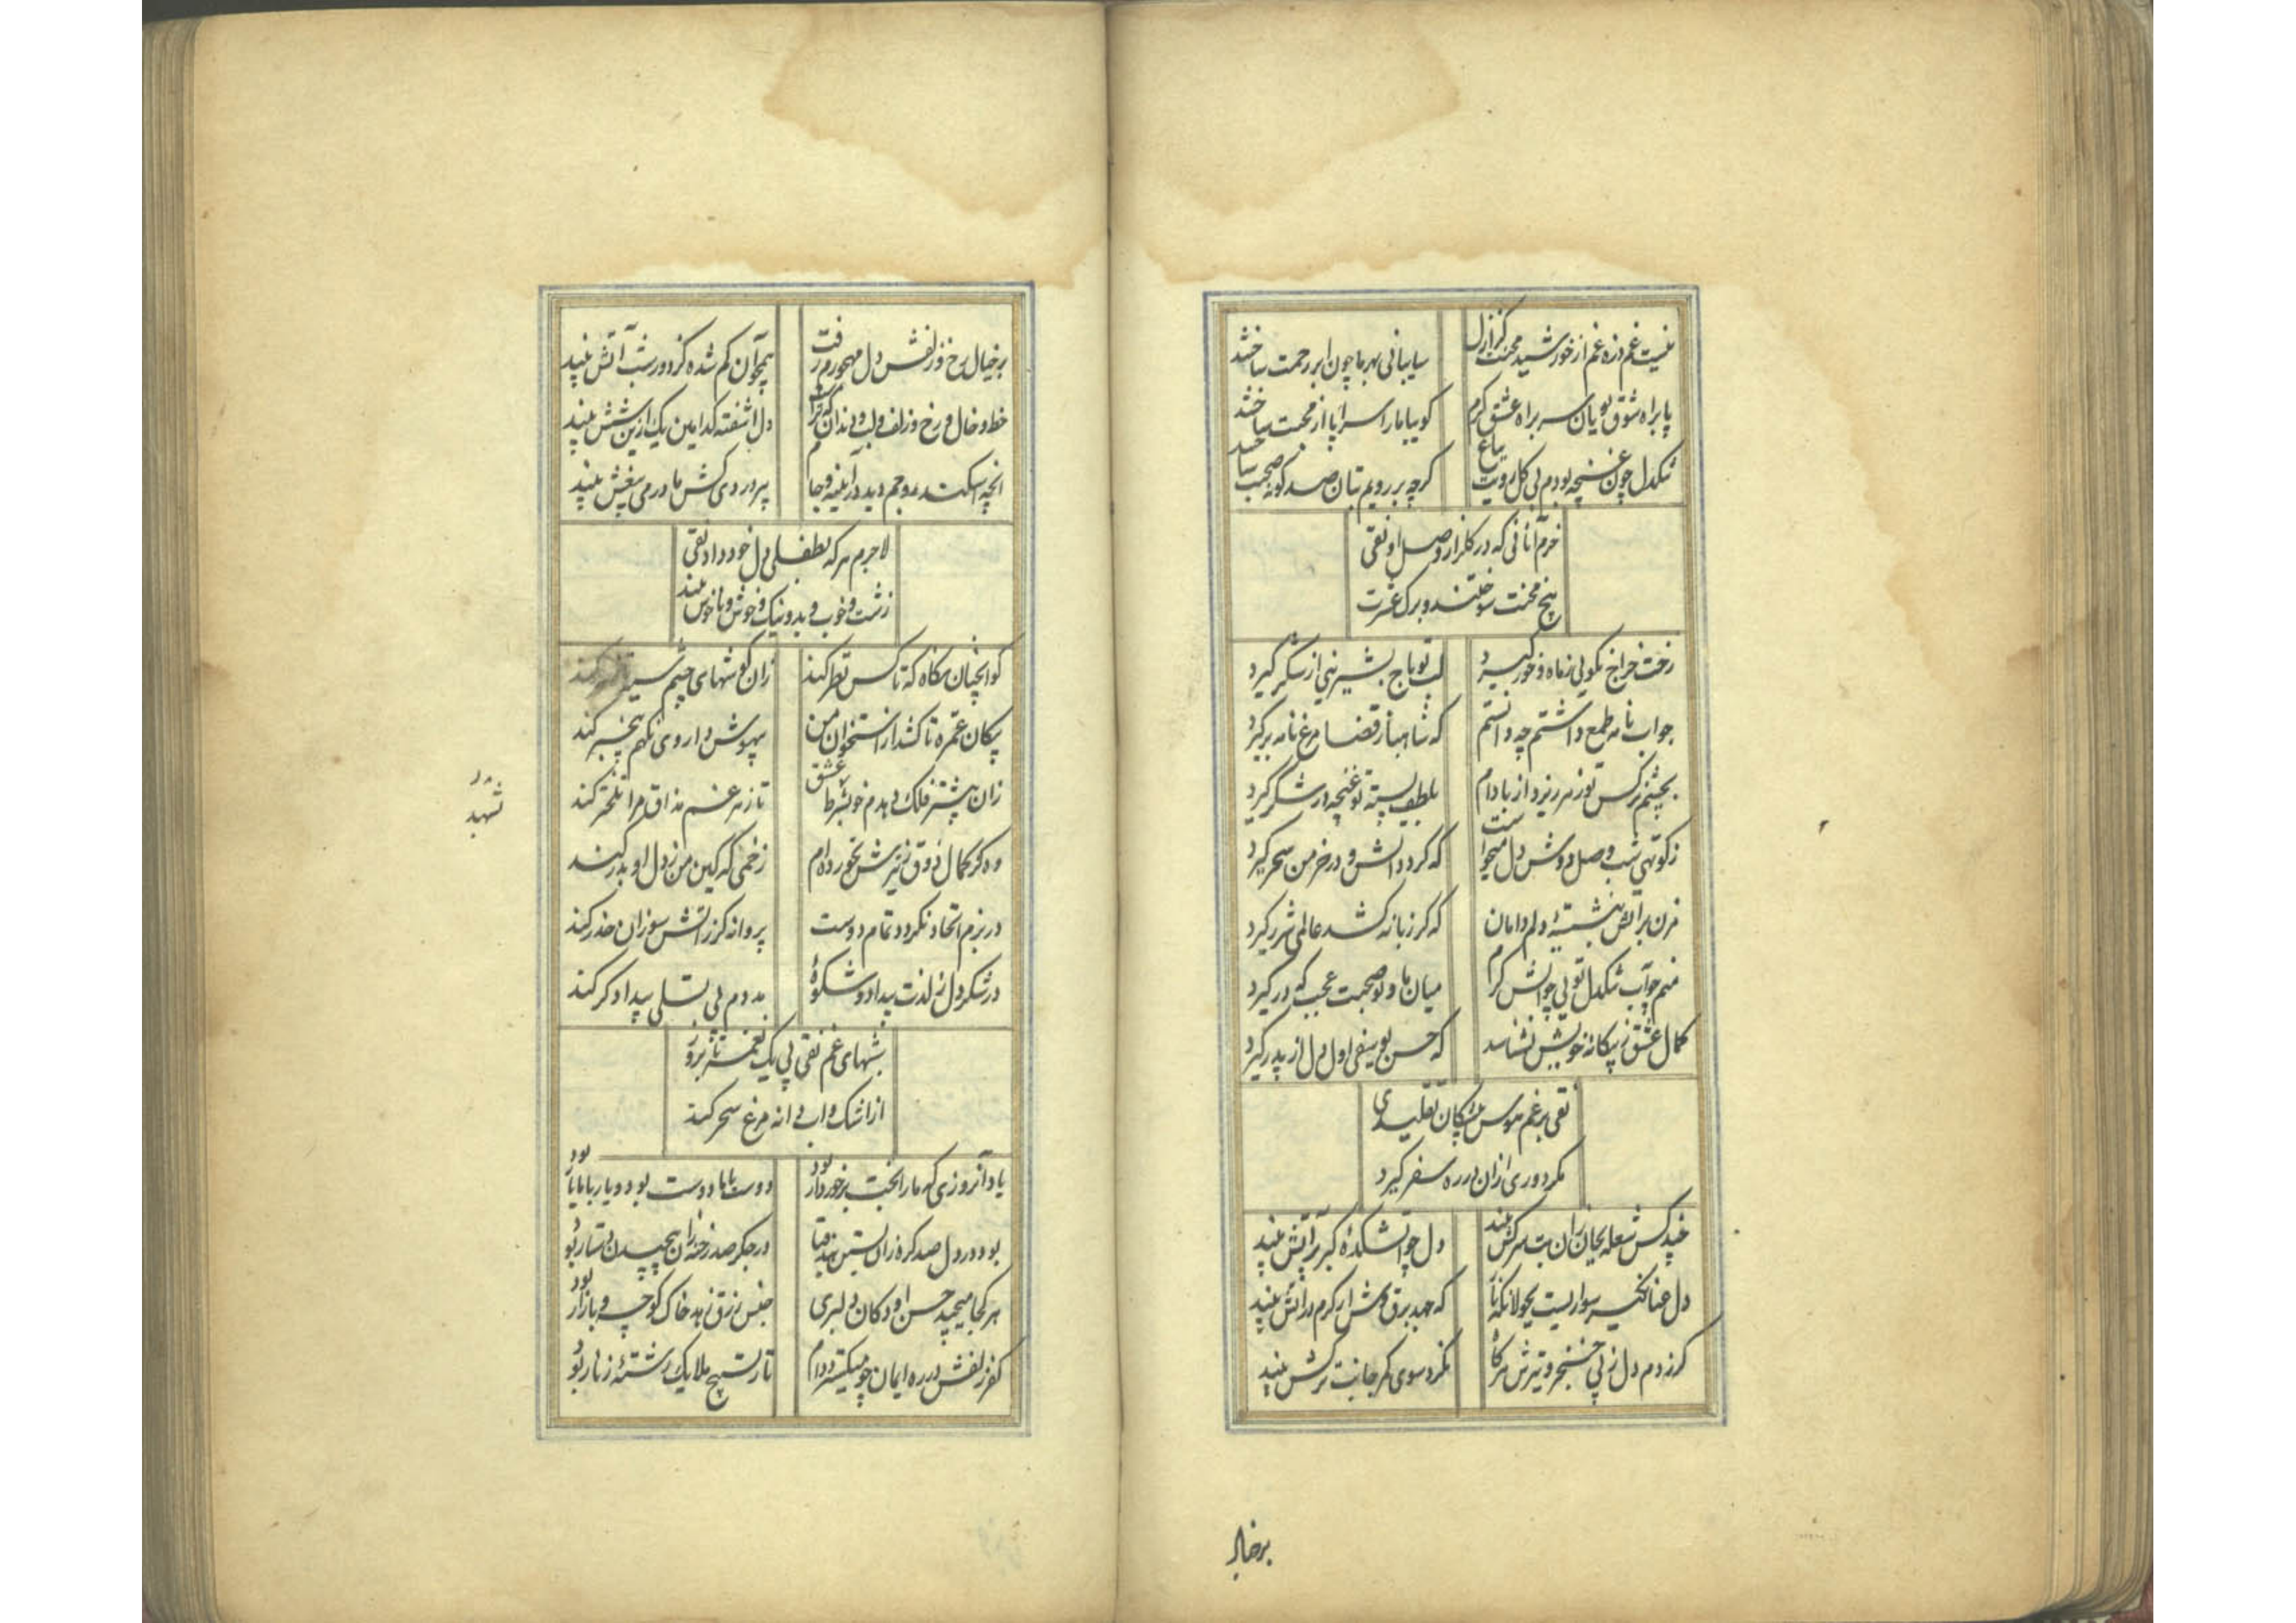 نیست غم ذره غم از خورشید محنت کز ازل
سایبانی بهر ما چون ابر رحمت ساختند
پا براه شوق پویان سر براه عشق گرم
گوییا ما را سراپا از محبت ساختند
تنگدل چون غنچه بودم بی گل رویت بباغ
گرچه بر رویم بتان صد گونه صحبت ساختند
خرم آنانی که در گلزار وصل او نقی
بیخ محنت سوختند و برگ عشرت
رخت خراج نکویی ز ماه و خور گیرد
لب تو باج بشیرینی از شکر گیرد
جواب نامه طمع داشتم چه دانستم
که شاهباز قضا مرغ نامه بر گیرد
بچشم نرگس تو زهر ریزد از بادام
بلطف پسته تو غنچه در شکر گیرد
ز کوتهی شب وصل دوش دل میخواست
که گرد دانش و در خرمن سحر گیرد
مزن بر آتش بنشسته دلم دامان
که گر زبانه کشد عالمی شرر گیرد
منم چو آب تنگدل تویی چو آتش گرم
میان ما و تو صحبت عجب که درگیرد
کمال عشق ز بیگانه خویش نشناسد
که حسن یوسفی اول دل از پدر گیرد
نقی برغم هوس پیشگان تقلیدی
مگر دوری ازان در ره سفر گیرد
خیز کس شعله بجان زان بت سرکش بیند
دل چو آتشکده گبر پر آتش بیند
دل عنان سواریست بجولانگه ناز
که جهد برق وش ار گرم در آتش بیند
گر زدم دل ز پی خنجر و تیرش هرگاه
نگرد سوی کمر جانب ترکش بیند
برخیال
برخیال رخ و زلفش دل مهجورم رفت
همچو آن گم شده کز دور شب آتش بیند
خط و خال و رخ و زلف و لب و دندان که تراست
دل آشفته کدامین یک ازین شش بیند
آنچه اسکندر و جم دید در آیینه و جام
پیر دردی کش ما در می بیغش بیند
لاجرم هر که بطفلی دل خود داد نقی
زشت و خوب و بد و نیک و خوش و ناخوش بیند
کو آنچنان نگاه که تا کس نظر کند
زان گوشهای چشم
پیکان غمزه تا کشد از استخوان من
بیهوش داروی نگهم بیخبر کند
زان پیشتر فلک دهدم خو بشرط عشق
تا زهر غم مذاق مرا تلختر کند
وه کز کمال ذوق ز تیرش نخورده‌ام
زخمی که کین من ز دل او بدر کند
در بزم اتحاد نگردد تمام دوست
پروانه کز آتش سوزان حذر کند
در شکر دل ز لذت بیداد و شکوه
هر دم پی تسلی بیداد گر کند
شبهای غم نقی پی یک نغمه تا بروز
از اشک و آب دانه مرغ سحر کند
یاد آنروزی که ما را بخت برخوردار بود
دوست با ما دوست بود و یار با ما یار بود
بود در دل صد گره زان بستن بند قبا
در جگر صد رخنه زان پیچیدن دستار بود
هر کجا میچید حسن او دکان دلبری
جنس رزق زهد خاک کوچه و بازار بود
کفر زلفش در ره ایمان چو میگسترد دام
تار تسبیح ملایک رشته زنار بود